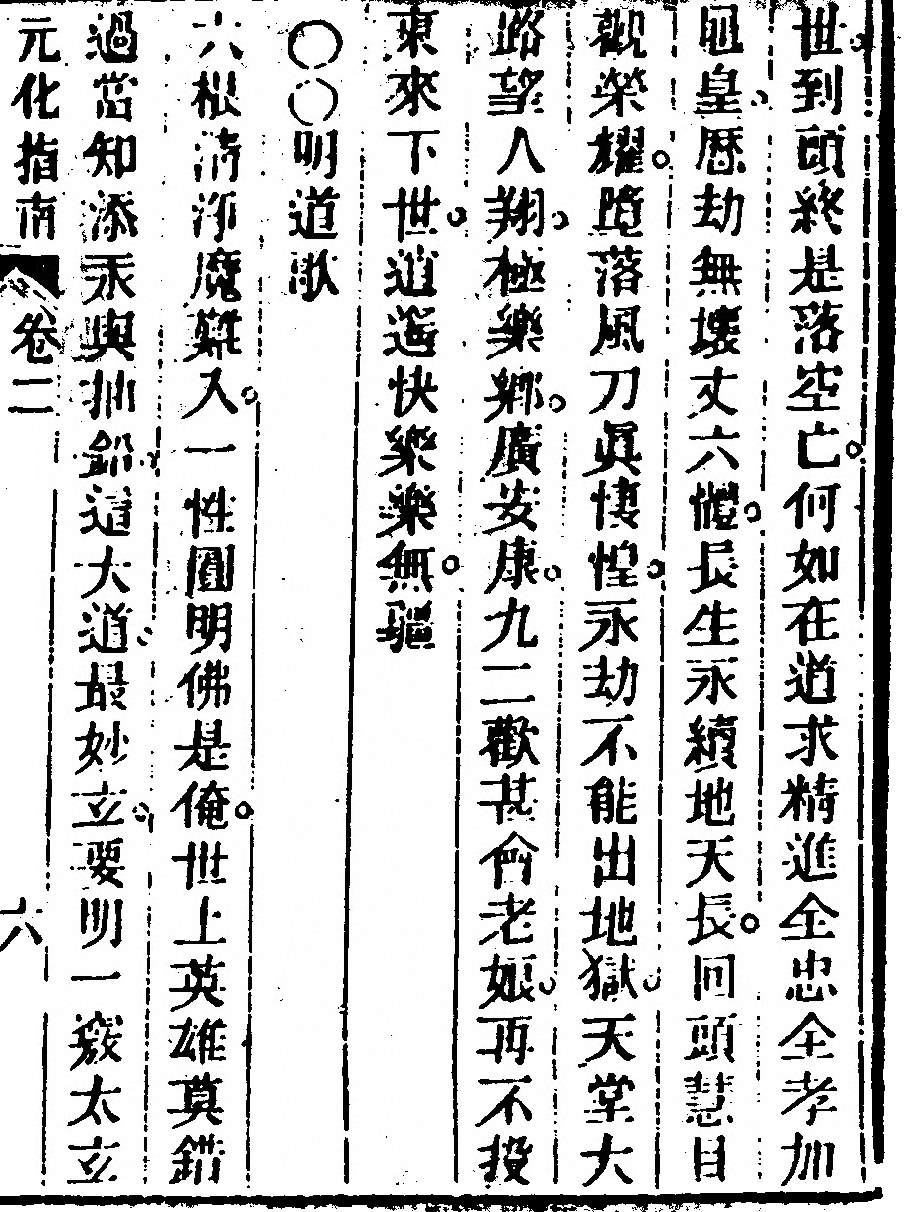 世到頭終是落空亡何如在道求精進全忠全孝加
皇曆劫無壞丈六體長生永續地天長回頭慧目
觀榮耀墮落風刀眞悽惶永劫不能出地獄天堂大
路望人翔極樂鄉廣安康九二歡甚俞老娘再不投
東來下世逍遙快樂樂無疆
〇〇明道歌
六根清淨魔難入一性圓明佛是俺世上英雄莫錯
過當知添汞與抽鉛道大道最妙立要明一竅太立
元化指南 卷二 六